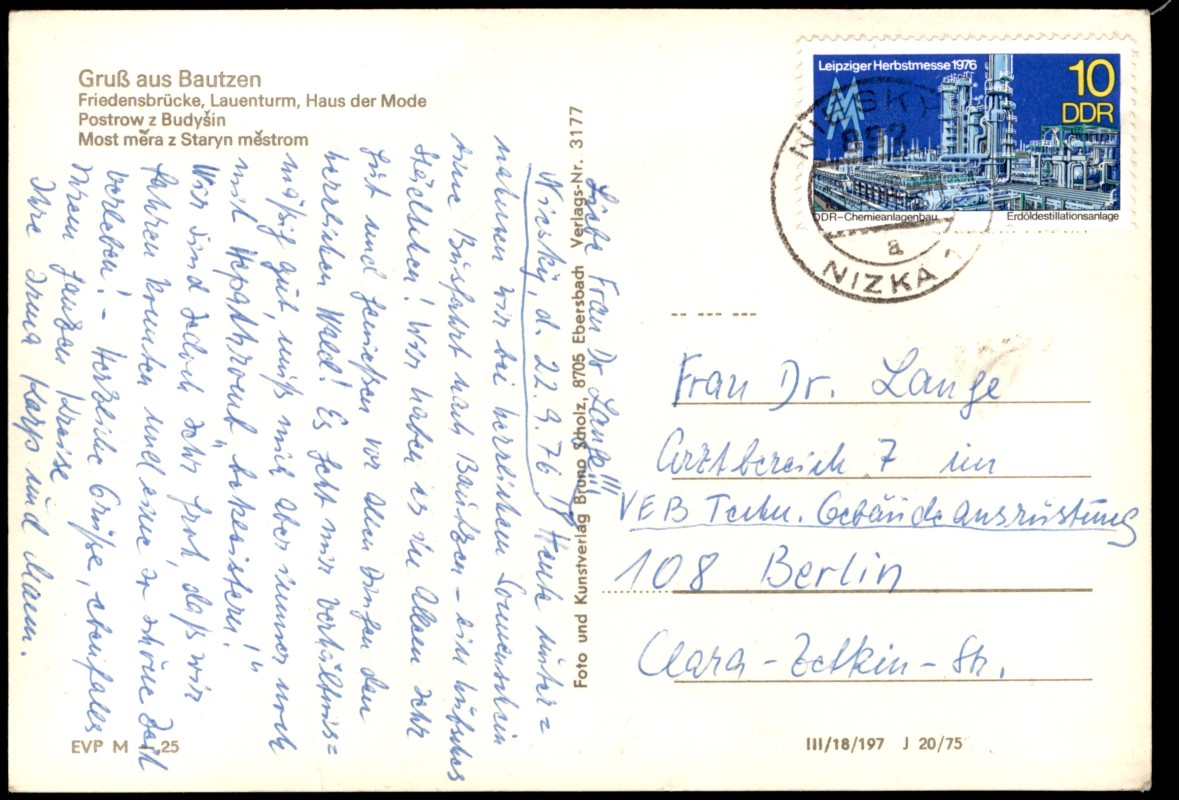 Gruß aus Bautzen
Friedensbrücke, Lauenturm, Haus der Mode
Postrow z Budyšin
Most měra z Staryn městrom
Leipziger Herbstmesse 1976
10
DDR
DDR-Chemieanlagenbau
Erdöldestillationsanlage
NIESKY
a
NIZKA 1
Foto und Kunstverlag Bruno Scholz, 8705 Ebersbach Verlags-Nr. 3177
Liebe Frau Dr Lange!!!
Niesky, d. 22.9.76 Heute unter=
nahmen wir bei herrlichem Sonnenschein
eine Busfahrt nach Bautzen – ein hübsches
Städtchen! Wir haben es in allem sehr
gut und genießen vor allen Dingen den
herrlichen Wald! Es geht mir verhältnis=
mäßig gut, muß mich aber immer noch
mit "bekeistern!"
Wir sind jedoch sehr froh, daß wir
fahren konnten und eine so schöne Zeit
verleben! – Herzliche Grüße, ebenfalls
Ihrem ganzen Kreise
Ihre Irma Karp und Mann.
Frau Dr. Lange
Arztbereich 7 im
VEB Techn. Gebäudeausrüstung
108 Berlin
Clara-Zetkin-Str.
EVP M –,25
III/18/197 J 20/75